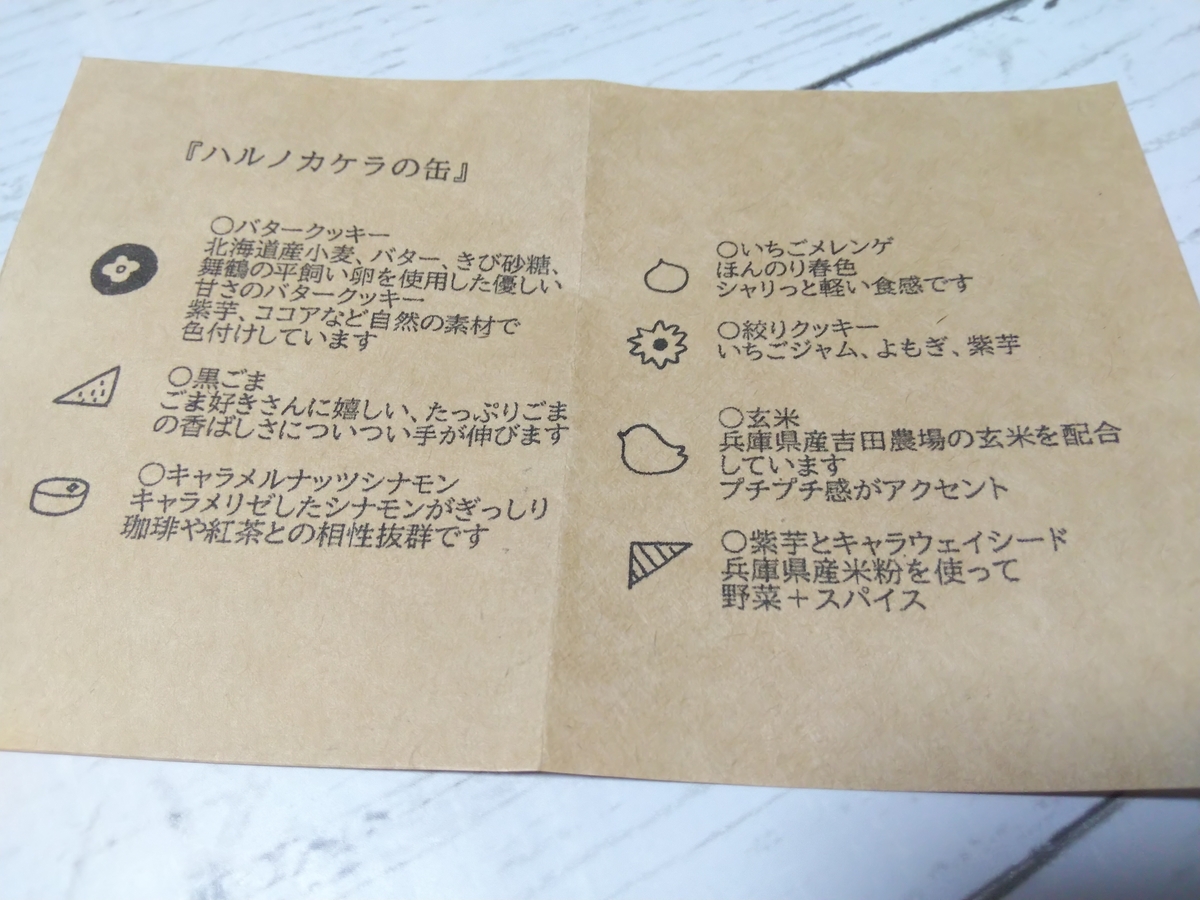 『ハルノカケラの缶』
〇バタークッキー
北海道産小麦、バター、きび砂糖、
舞鶴の平飼い卵を使用した優しい
甘さのバタークッキー
紫芋、ココアなど自然の素材で
色付けしています
〇黒ごま
ごま好きさんに嬉しい、たっぷりごま
の香ばしさについつい手が伸びます
〇キャラメルナッツシナモン
キャラメリゼしたシナモンがぎっしり
珈琲や紅茶との相性抜群です
〇いちごメレンゲ
ほんのり春色
シャリっと軽い食感です
〇絞りクッキー
いちごジャム、よもぎ、紫芋
〇玄米
兵庫県産吉田農場の玄米を配合
しています
プチプチ感がアクセント
〇紫芋とキャラウェイシード
兵庫県産米粉を使って
野菜＋スパイス